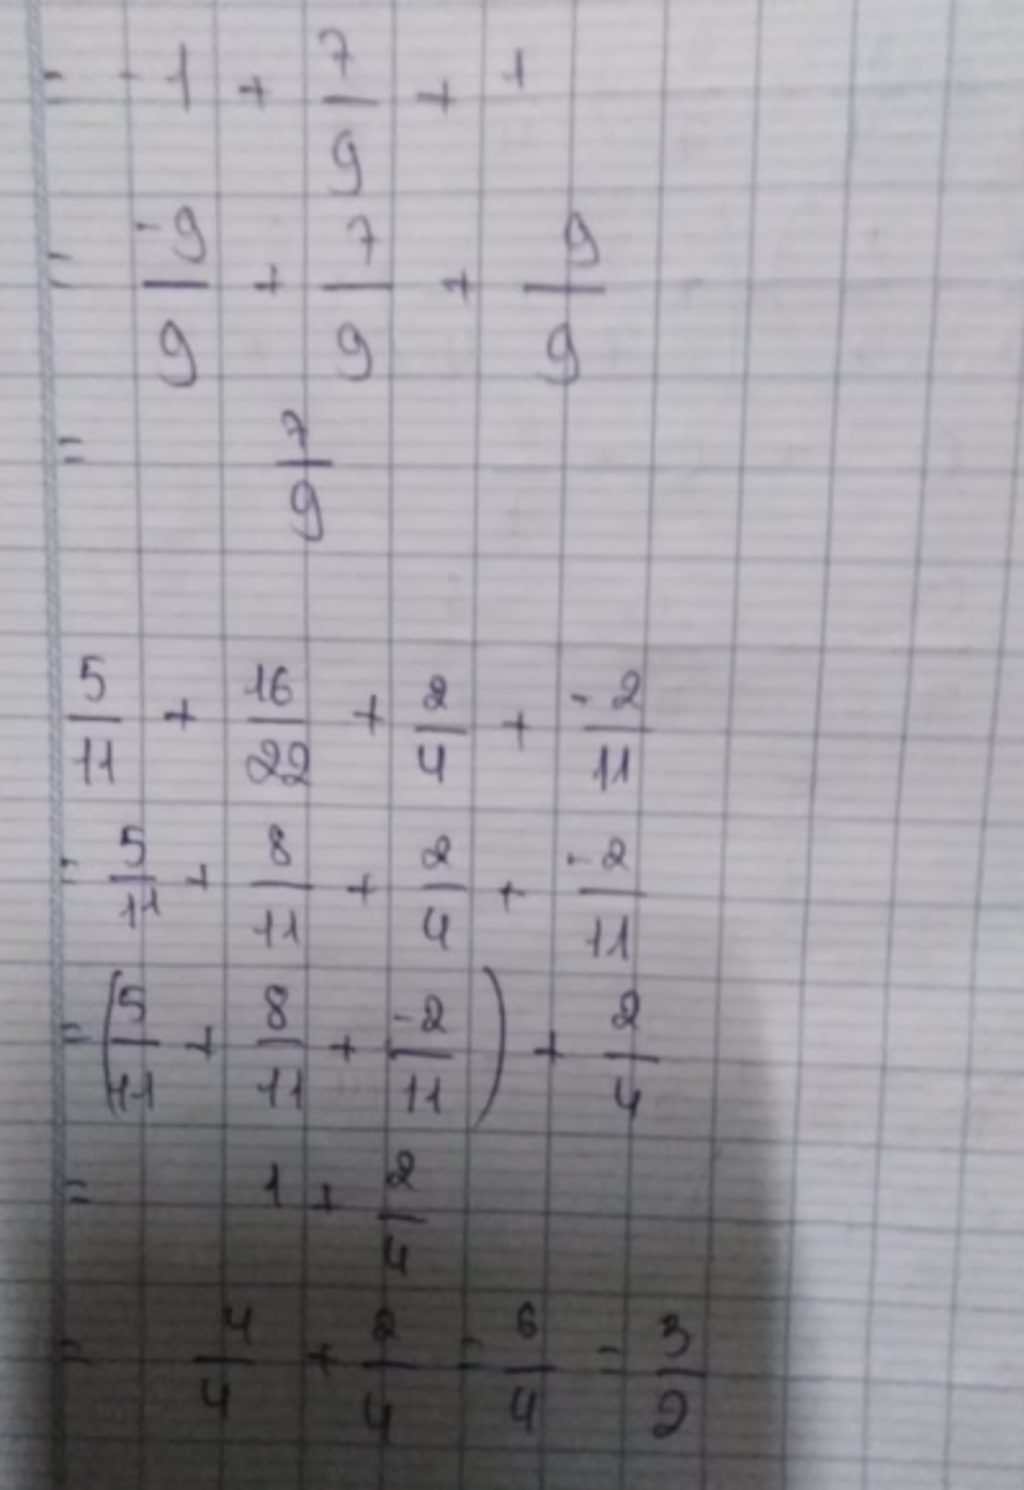 = -1 + 7/9 + 1
= -9/9 + 7/9 + 9/9
= 7/9
5/11 + 16/22 + 2/4 + -2/11
= 5/11 + 8/11 + 2/4 + -2/11
= (5/11 + 8/11 + -2/11) + 2/4
= 1 + 2/4
= 4/4 + 2/4 = 6/4 = 3/2